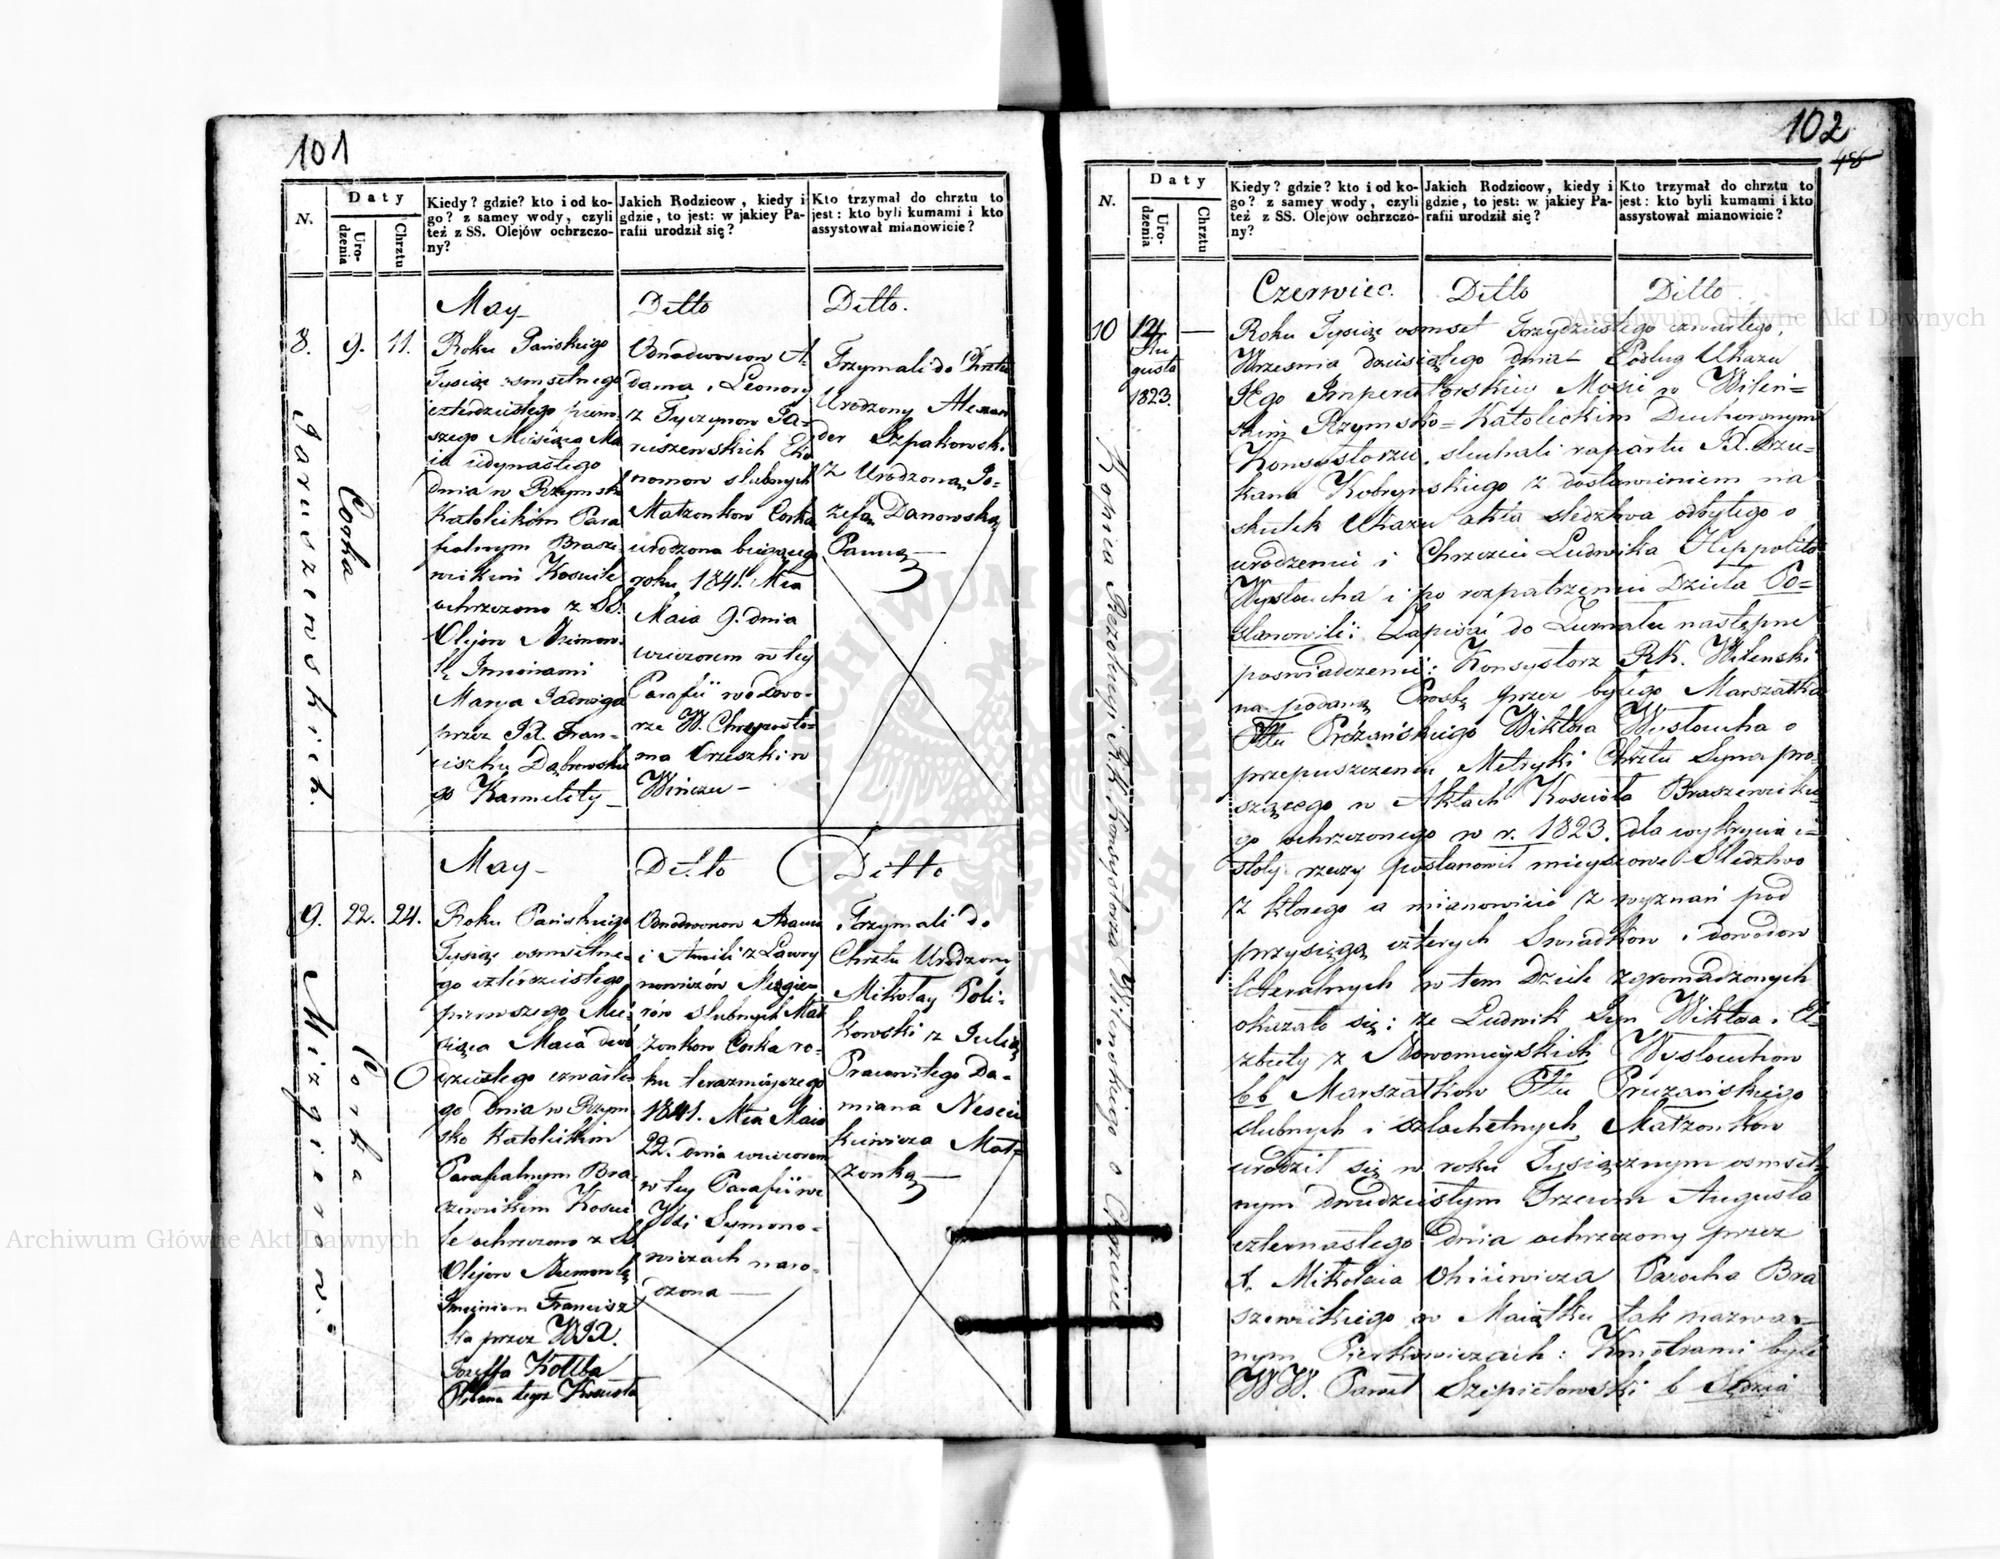 101
N.
Daty
Uro-
dzenia
Chrztu
Kiedy? gdzie? kto i od ko-
go? z samey wody, czyli
też z SS. Olejów ochrzczo-
ny?
Jakich Rodzicow, kiedy i
gdzie, to jest: w jakiey Pa-
rafii urodził się?
Kto trzymał do chrztu to
jest: kto byli kumami i kto
assystował mianowicie?
May
Ditto
Ditto.
8.
9.
11.
Jaruszewskich.
Corka
Roku Pańskiego
Tysiąc osmsetnego
czterdziestego pierw-
szego Miesiąca Ma
ia iedynastego
dnia w Rzymsko
Katolickim Para
fialnym Brasze-
wickim Kościele
ochrzczono z SS.
Olejow
Imionami
Marya Jadwiga
przez JX. Fran-
ciszka Dąbrowskie
go Karmelity
Odnodworcow A-
dama i Leonory
z Tyczynow Ja-
ruszewskich Eko
nomow slubnych
Małżonkow Corka
urodzona bieżącego
roku 1841. Mca
Maia 9. dnia
wieczorem w tey
Parafii w dwo-
rze W. Chryzosto-
ma Orzeszki w
Trzymali do Chrztu
Urodzony Alexan
der Szpakowski
z Urodzoną Jo-
zefą Danowską
Panną
May
Ditto
Ditto
9.
22.
24.
Mizgierow.
Corka
Roku Pańskiego
Tysiąc osmsetne-
go czterdziestego
pierwszego Mie-
siąca Maia dwó
dziestego czwarte
go dnia w Rzym
sko Katolickim
Parafialnym Bra-
szewickim Koscie
le ochrzczono z SS
Olejow Niemowlę
Imieniem Francisz
ka przez WJX.
Jozeffa Kottba
Plebana tegoż Koscioła
Odnodworcow Adama
i Amilii z Ławry
nowiczów Mizgie-
rów slubnych Mał
żonkow Corka ro-
ku teraznieyszego
1841. Mca Maia
22. dnia wieczorem
w tey Parafii we
Wsi Symono-
wiczach naro-
dzona
Trzymali do
Chrztu Urodzony
Mikołay Poli-
kowski z Julią
Pracowitego Da-
miana Nesciu
kiewicza Mał-
żonką
102
456
N.
Daty
Uro-
dzenia
Chrztu
Kiedy? gdzie? kto i od ko-
go? z samey wody, czyli
też z SS. Olejów ochrzczo-
ny?
Jakich Rodzicow, kiedy i
gdzie, to jest: w jakiey Pa-
rafii urodził się?
Kto trzymał do chrztu to
jest: kto byli kumami i kto
assystował mianowicie?
Czerwiec.
Ditto
Ditto
10
14
Au
gusta
1823.
Kopia Rezolucyi RK. Konsystorza Wileńskiego o Chrzcie
Roku Tysiąc osmset Trzydziestego czwartego,
Wrzesnia dziesiątego dnia Podług Ukazu
Jego Imperatorskiey Mości w Wileń-
skim Rzymsko-Katolickim Duchownym
Konsystorzu, słuchali raportu JX. Dzie-
kana Kobrynskiego z dostawieniem na
skutek Ukazu akta sledztwa odbytego o
urodzeniu i Chrzcie Ludwika Hippolita
Wysłoucha i po rozpatrzeniu Dzieła Po-
stanowili: Zapisać do Zurnału następne
poswiadczenie: Konsystorz RK. Wilenski
na podaną Prosbę przez byłego Marszałka
Pttu Prużańskiego Wiktora Wysłoucha o
przepuszczeniu Metryki Chrztu Syna pro-
szącego w Aktach Kosciola Braszewickie-
go ochrzczonego w r. 1823. dla wykrycia i-
stoty rzeczy postanowił mieyscowe Sledztwo
z ktorego a mianowicie z wyznań pod
przysięgą czterych Swiadkow i dowodow
literalnych w tem Dziele zgromadzonych
okazało się: że Ludwik Syn Wiktora i El-
zbiety z Nowomieyskich Wysłouchow
bb Marszałkow Pttu Prużańskiego
slubnych i szlachetnych Małżonkow
urodził się w roku Tysiącznym osmset-
nym dwudziestym Trzecim Augusta
czternastego dnia ochrzczony przez
X. Mikołaia Parocha Bra
szewickiego w Maiątku tak nazwa-
nym Pierkowiczach: Kmotrami byli
WW. Paweł Szepietowski b Sędzia
Archiwum Główne Akt Dawnych
Archiwum Główne Akt Dawnych
ARCHIWUM GŁÓWNE AKT DAWNYCH